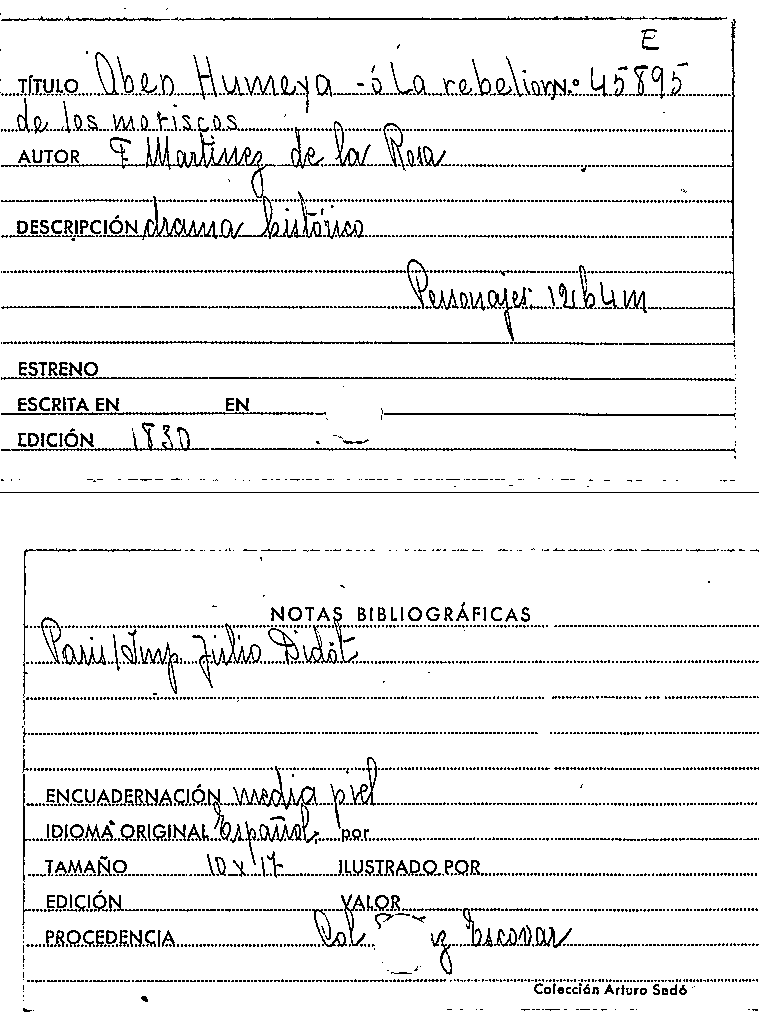 E
TÍTULO Aben Humeya - ó La rebelion N.º 45895
de los moriscos
AUTOR F Martinez de la Rosa
DESCRIPCIÓN drama histórico
Personajes: 12h 4m
ESTRENO
ESCRITA EN EN
EDICIÓN 1830
NOTAS BIBLIOGRÁFICAS
Paris/Imp. Julio Didót
ENCUADERNACIÓN media piel
IDIOMA ORIGINAL Español, por
TAMAÑO 10 x 17 ILUSTRADO POR
EDICIÓN VALOR
PROCEDENCIA Col. Escovar
Colección Arturo Sedó